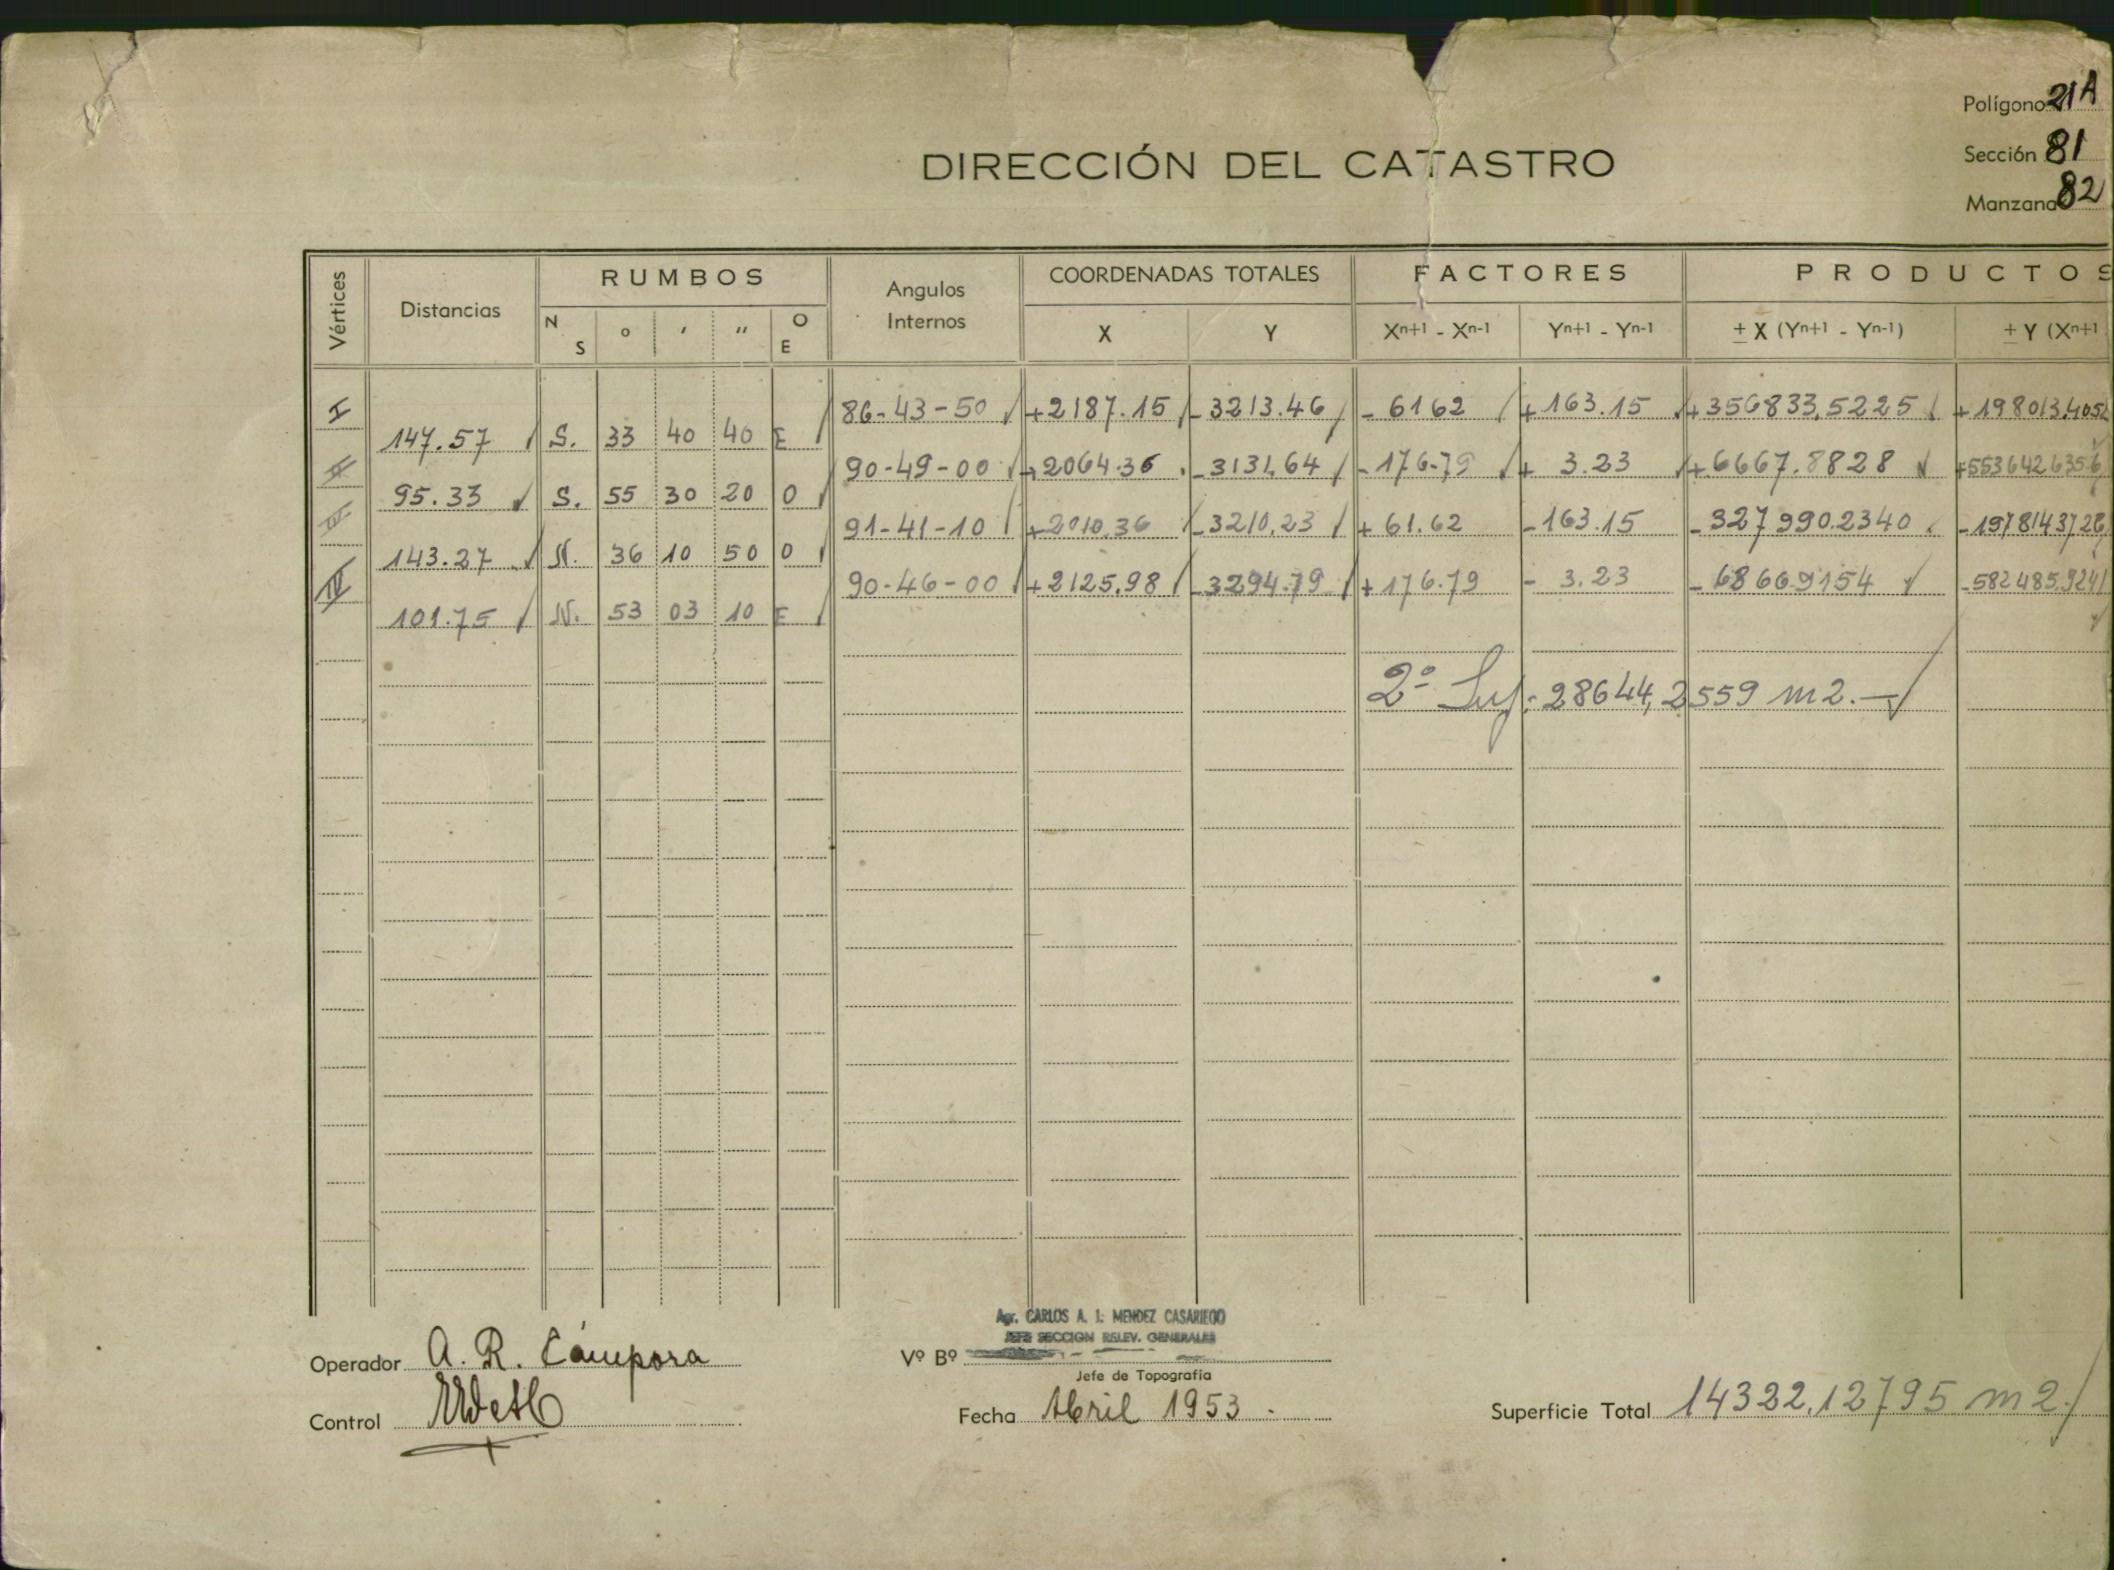 Polígono 21A
DIRECCIÓN DEL CATASTRO
Sección 81
Manzana 82
Vértices Distancias RUMBOS Angulos Internos COORDENADAS TOTALES FACTORES PRODUCTOS
N S o ′ ″ O E X Y Xn+1 - Xn-1 Yn+1 - Yn-1 ± X (Yn+1 - Yn-1) ± Y (Xn+1
I 86-43-50 +2187.15 -3213.46 - 6162 +163.15 +356833,5225 +198013,4052
147.57 S. 33 40 40 E
II 90-49-00 +2064.36 -3131,64 -176.79 + 3.23 +6667.8828 +5536426356
95.33 S. 55 30 20 O
III 91-41-10 +2010,36 -3210,23 + 61.62 -163.15 -327990.2340 -1978143726
143.27 N. 36 10 50 O
IV 90-46-00 +2125,98 -3294.79 +176.79 - 3.23 -68669154 -582485,9241
101.75 N. 53 03 10 E
2º Sup: 28644,2559 m2.-
Agr. CARLOS A. I. MENDEZ CASARIEGO
JEFE SECCION RELEV. GENERALES
Operador A. R. Cámpora Vº Bº
Jefe de Topografía
Control Fecha Abril 1953. Superficie Total 14322,12795 m2